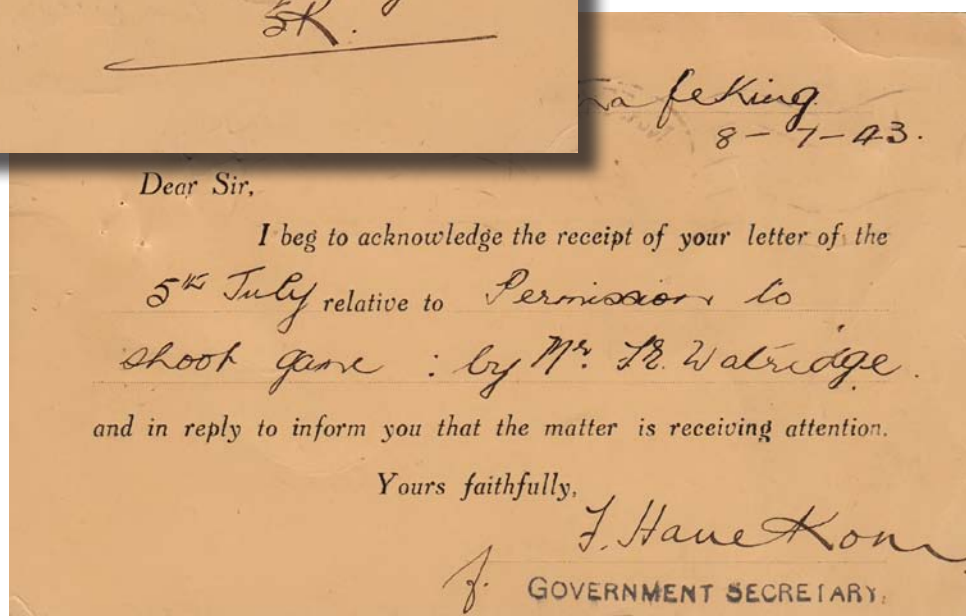 SK.
feKing
8-7-43.
Dear Sir,
I beg to acknowledge the receipt of your letter of the
5th July relative to Permission to
shoot game : by Mr. F.E. Watridge.
and in reply to inform you that the matter is receiving attention.
Yours faithfully,
F. Hauekom
f. GOVERNMENT SECRETARY.